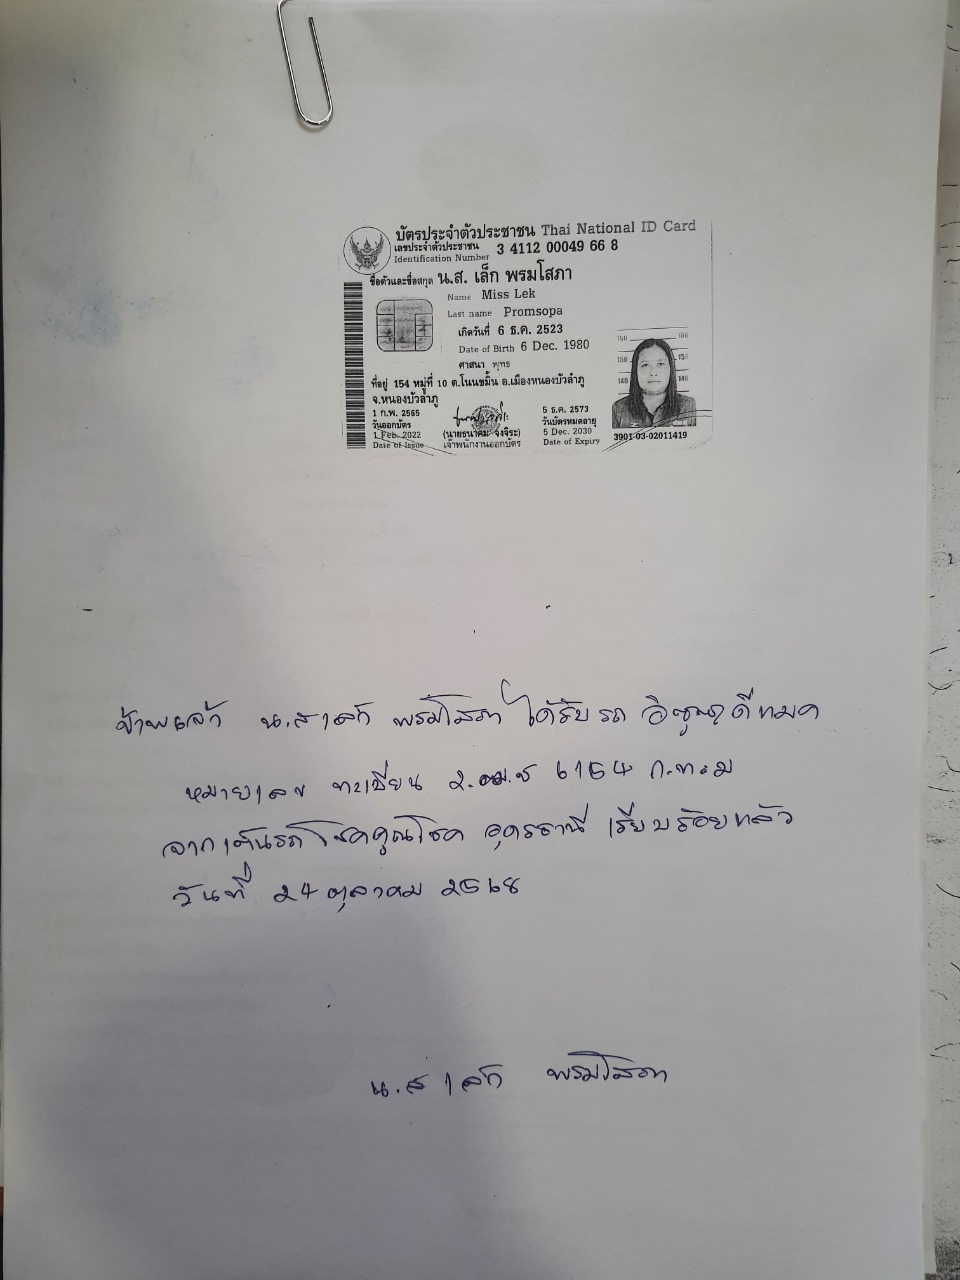 บัตรประจำตัวประชาชน Thai National ID Card
เลขประจำตัวประชาชน 3 4112 00049 66 8
Identification Number
ชื่อตัวและชื่อสกุล น.ส. เล็ก พรมโสภา
Name Miss Lek
Last name Promsopa
เกิดวันที่ 6 ธ.ค. 2523
Date of Birth 6 Dec. 1980
ศาสนา พุทธ
ที่อยู่ 154 หมู่ที่ 10 ต.โนนขมิ้น อ.เมืองหนองบัวลำภู
จ.หนองบัวลำภู
1 ก.พ. 2565
วันออกบัตร
1 Feb. 2022
Date of Issue
(นายธนาคม จงจิระ)
เจ้าพนักงานออกบัตร
5 ธ.ค. 2573
วันบัตรหมดอายุ
5 Dec. 2030
Date of Expiry
160 160
150 150
140 140
3901-03-02011419
ข้าพเจ้า น.ส เล็ก พรมโสภา ได้รับรถ อีซูซุ ดีแมค
หมายเลข ทะเบียน 2.ฒ.ช 6164 ก.ท.ม
จากเต้นรถ โชคคูณโชค อุดรธานี เรียบร้อยแล้ว
วันที่ 24 ตุลาคม 2568
น.ส เล็ก พรมโสภา